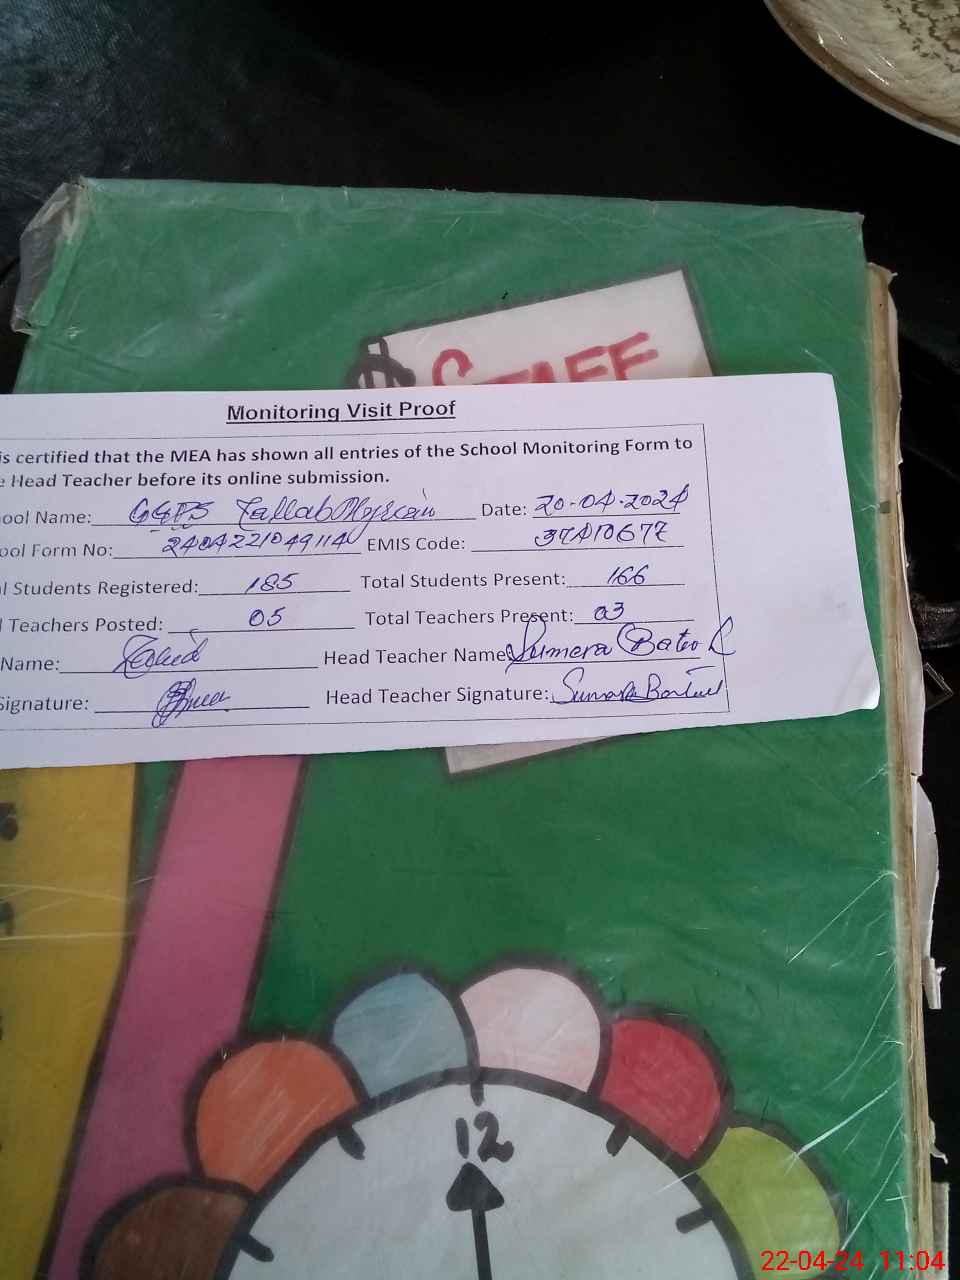 STAFF
Monitoring Visit Proof
is certified that the MEA has shown all entries of the School Monitoring Form to
e Head Teacher before its online submission.
ool Name: GGPS Date: 20-04-2024
ool Form No: 2404221049114 EMIS Code: 37410677
l Students Registered: 185 Total Students Present: 166
l Teachers Posted: 05 Total Teachers Present: 03
Name: Head Teacher Name Sumera
Signature: Head Teacher Signature:
12
22-04-24 11:04